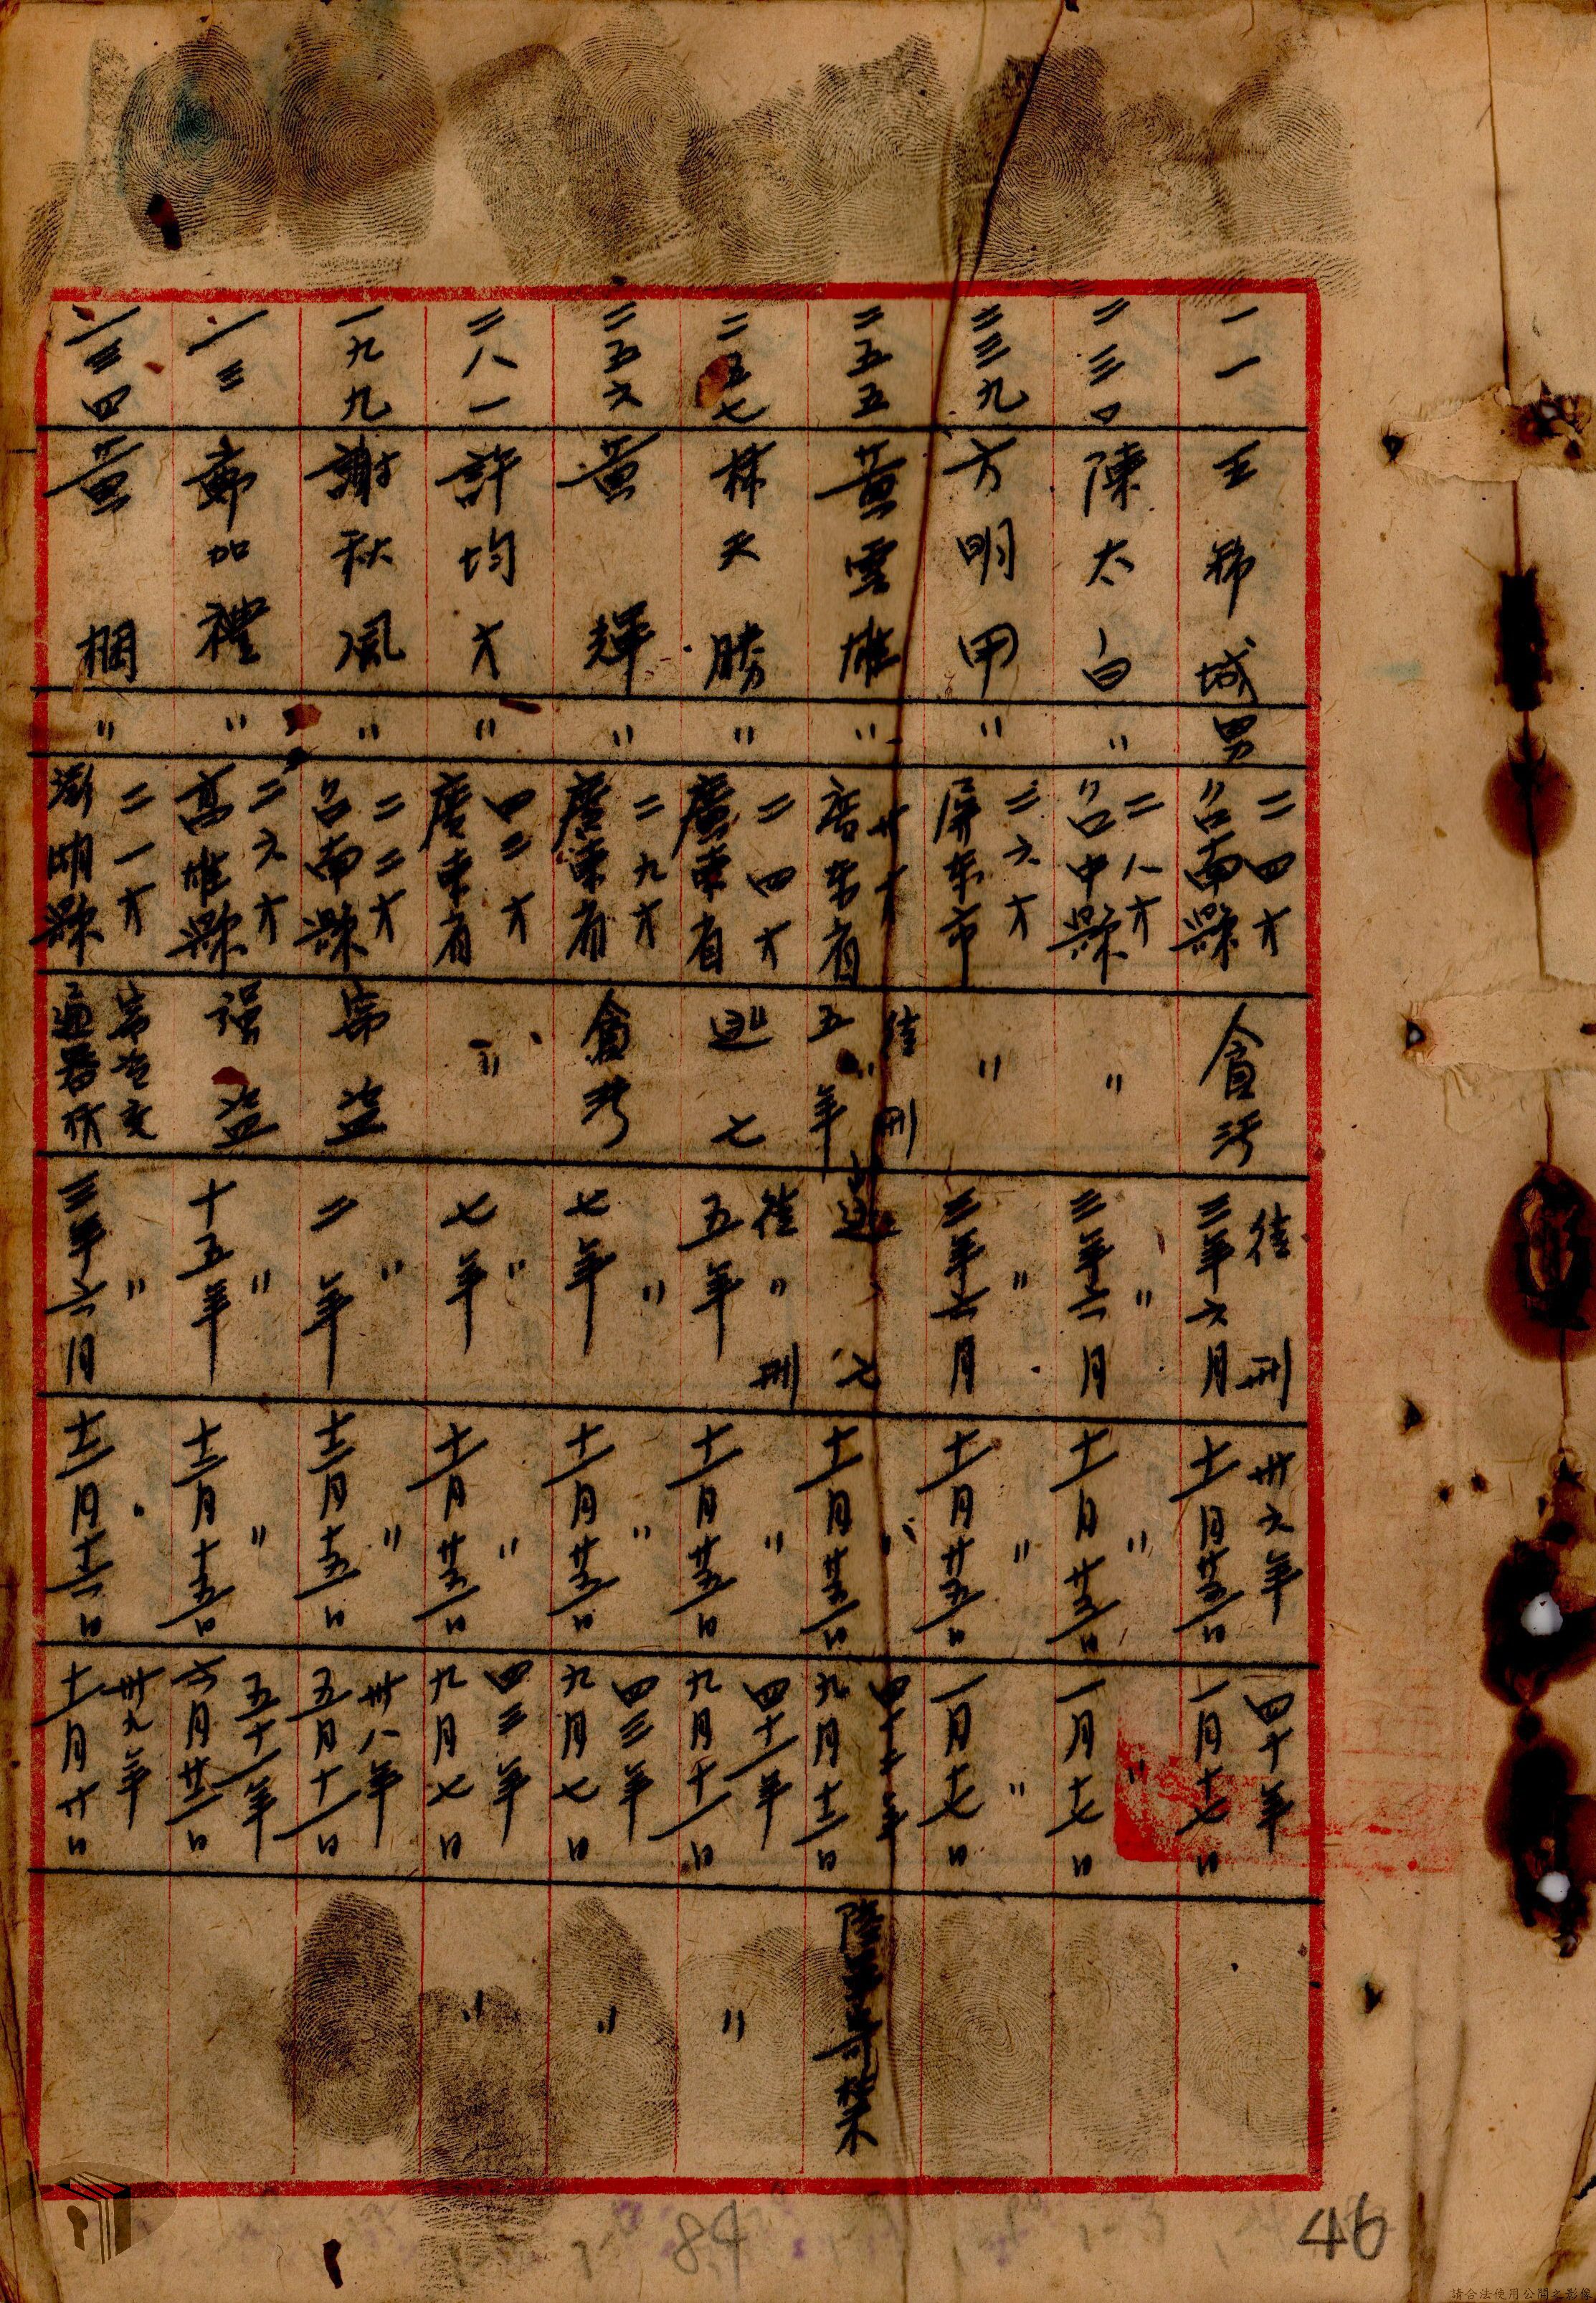 一一
王
城
男
二四才
台南縣
貪污
徒刑
三年六月
卅六年
十一月廿五日
四十年
一月十七日
二三四
陳太白
〃
二八才
台中縣
〃
〃
三年六月
〃
十一月廿五日
〃
一月十七日
二三九
方明甲
〃
二六才
屏东市
〃
〃
三年六月
〃
十一月廿五日
〃
一月十七日
二五五
黃雲雄
〃
廿才
廣东省
徒刑
五年
逃亡
〃
十一月廿五日
九月十二日
二五七
林天勝
〃
二四才
廣東省
逃亡
徒刑
五年
〃
十一月廿五日
四十一年
九月十一日
〃
二五六
黃輝
〃
二九才
廣東省
貪污
〃
七年
〃
十一月廿五日
四三年
九月七日
〃
二八一
許均才
〃
四二才
廣東省
〃
〃
七年
〃
十一月廿五日
四三年
九月七日
〃
一九九
謝秋風
〃
二二才
台南縣
竊盜
〃
二年
〃
十二月十五日
卅八年
五月十一日
一三
鄭加禮
〃
二六才
高雄縣
強盜
〃
十五年
〃
十二月十五日
五十一年
六月廿二日
一三四
黃
〃
二一才
澎湖縣
〃
三年六月
十二月十六日
卅九年
十一月廿日
84
46
請合法使用公開之影像